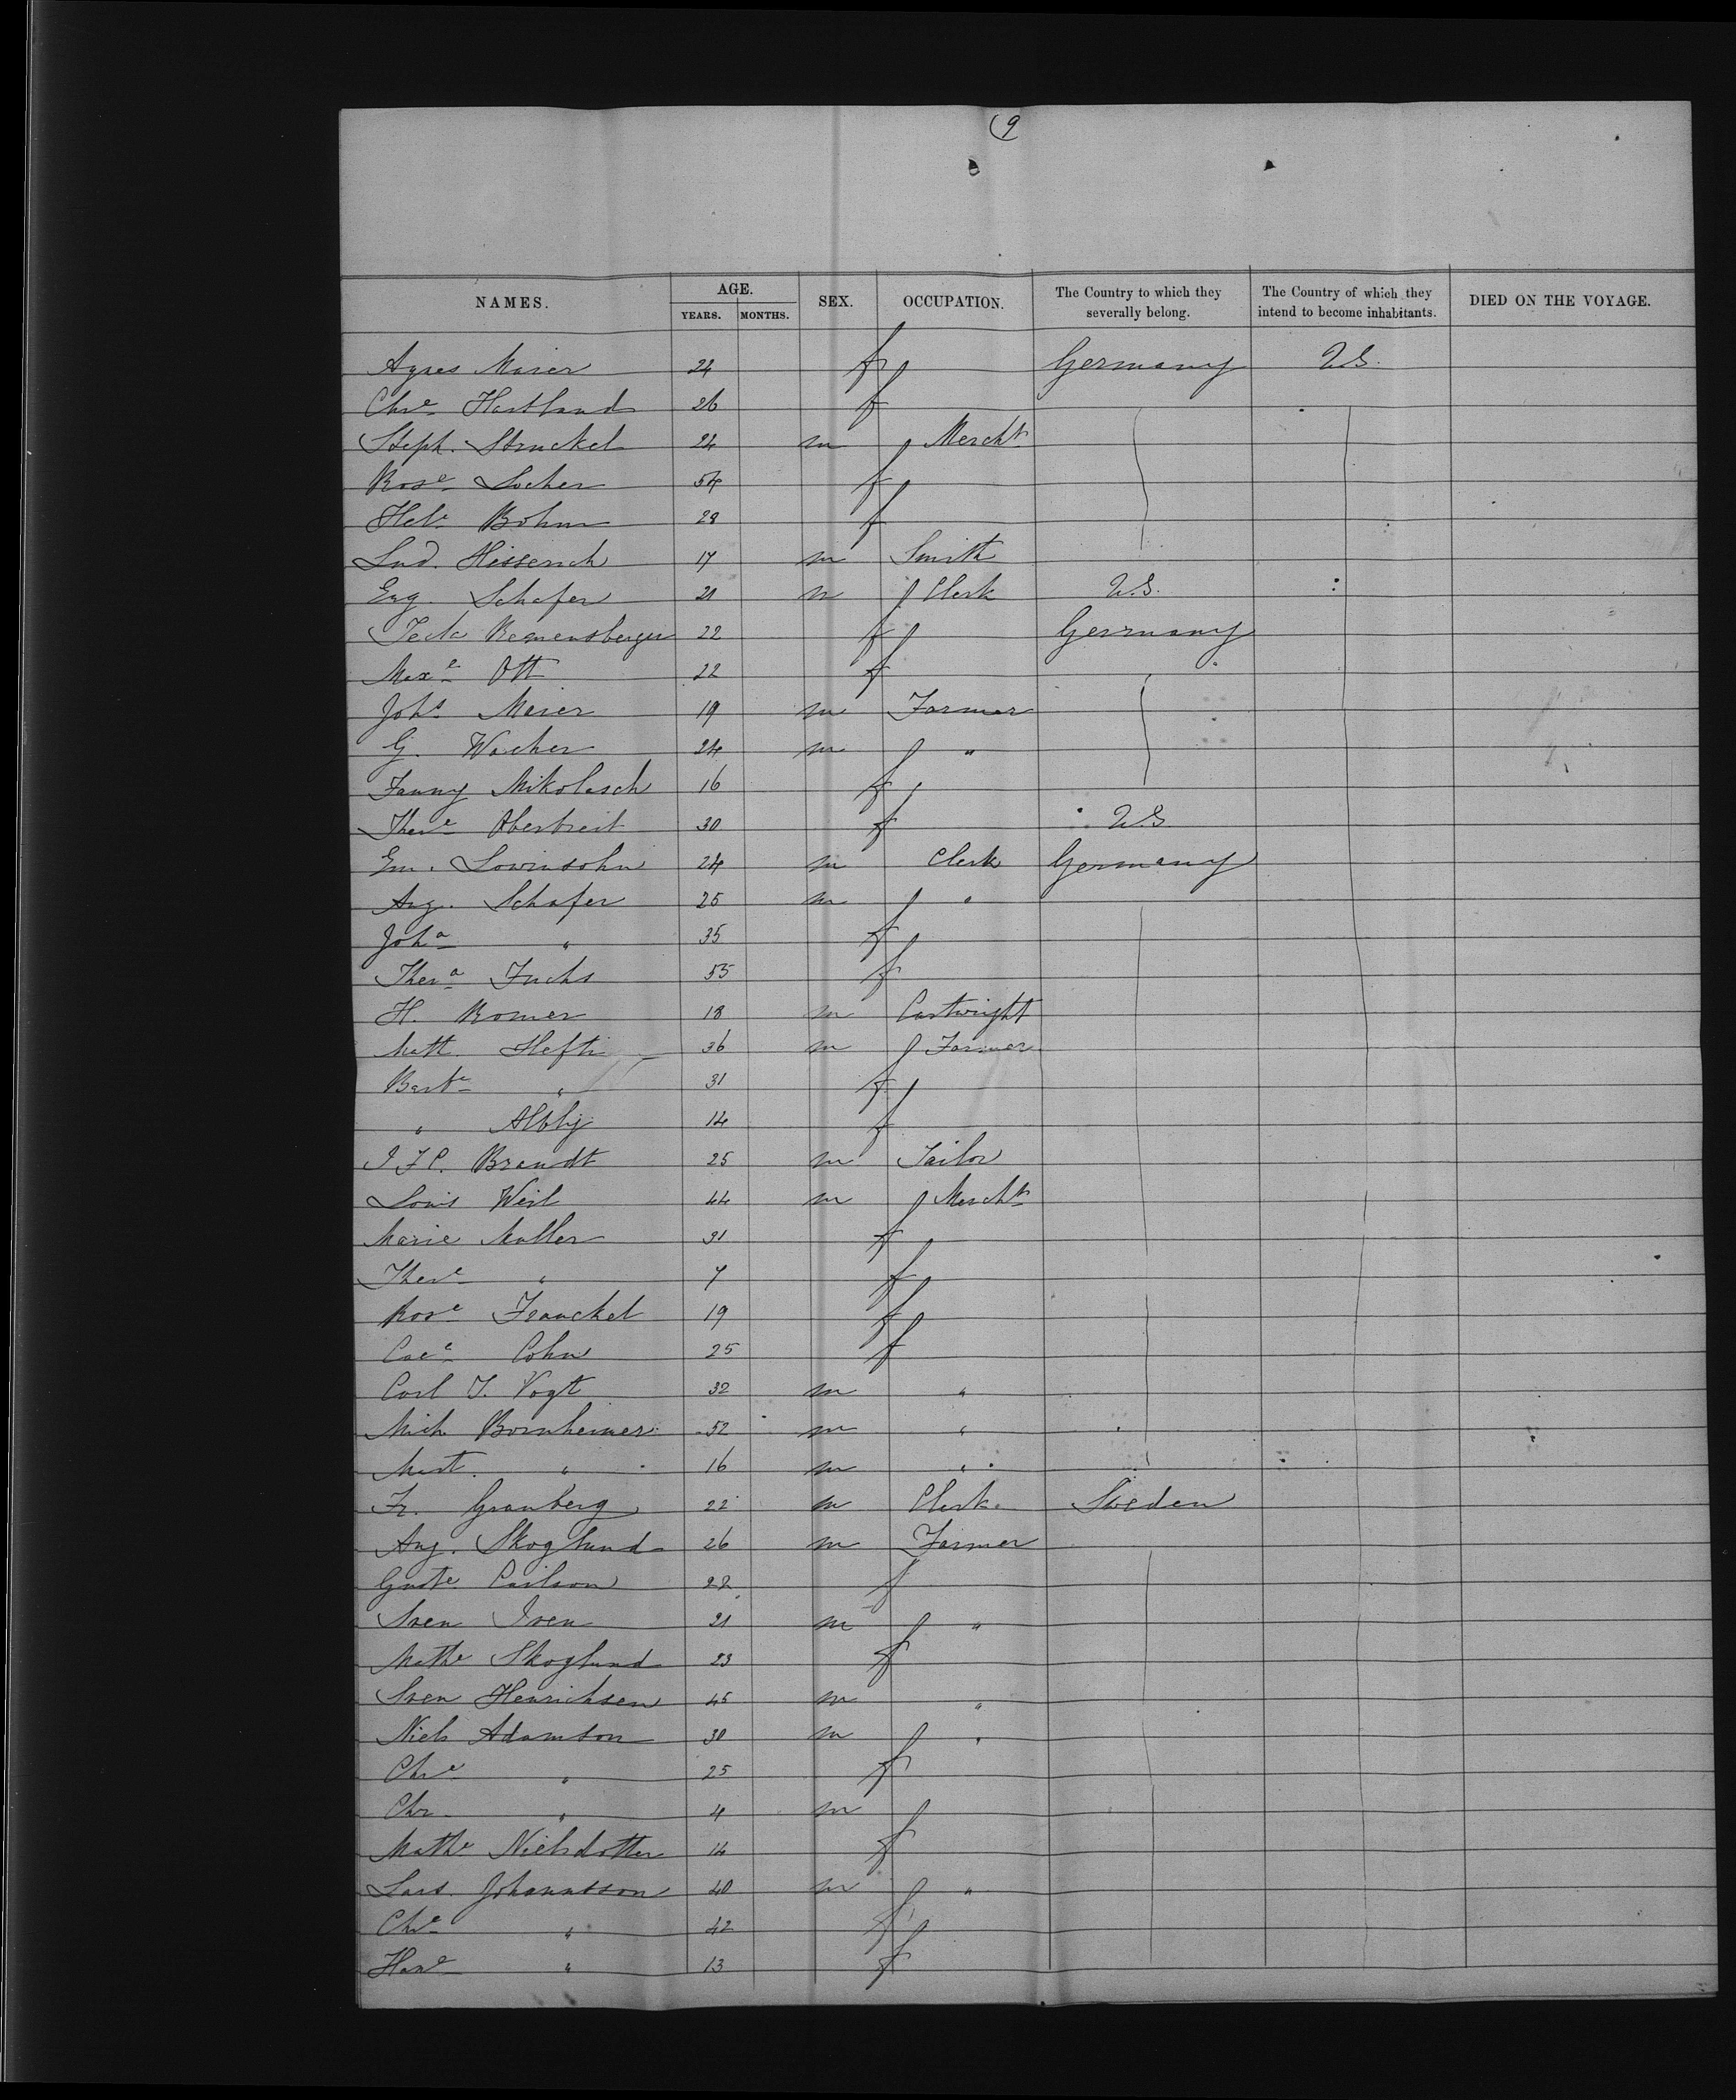 9
NAMES. AGE. YEARS. MONTHS. SEX. OCCUPATION. The Country to which they severally belong. The Country of which they intend to become inhabitants. DIED ON THE VOYAGE.
Agnes Maier 24 f Germany U.S.
Chre Hartland 26 f
Steph. Struckel 24 m Mercht
Rose Locher 54 f
Hele Bohm 28 f
Lud. Hisserich 17 m Smith
Eug. Schafer 21 m Clerk U.S.
Tecla Remensberger 22 f Germany
Maxe Ott 22 f
Johs Maier 19 m Farmer
G. Wacher 24 m "
Fanny Mikolasch 16 f
There Oberbreit 30 f U.S.
Em. Lowinsohn 24 m Clerk Germany
Aug. Schafer 25 m "
Joha " 35 f
Thera Fuchs 55 f
H. Romer 18 m Cartwright
Matt. Hefti 36 m Farmer
Barbe " 31 f
" 14 f
J F C. Brandt 25 m Tailor
Louis Weil 44 m Mercht
Marie Muller 31 f
There " 7 f
Rose Franckel 19 f
Cace Cohn 25 f
Carl T. Vogt 32 m "
Mich Bornheimer 52 m "
Mart. " 16 m "
Fr. Granberg 22 m Clerk Sweden
Aug. Skoglund 26 m Farmer
Guste Carlson 22 f
Sven Iven 21 m "
Mathe Skoglund 23 f
Sven Henrichsen 45 m "
Niels Adamson 30 m "
Chre " 25 f
Chr. " 4 m
Mathe Nielsdotter 14 f
Lars Johannsson 40 m "
Chre " 42 f
Hane " 13 f